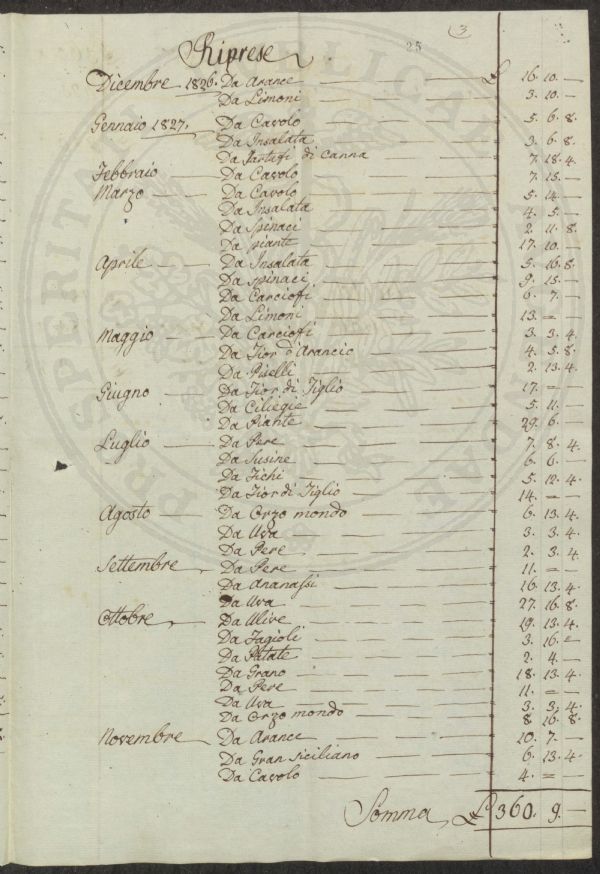 25
3
Riprese
Dicembre 1826. Da Arance £ 16. 10. —
Da Limoni 3. 10. —
Gennaio 1827. Da Cavolo 5. 6. 8.
Da Insalata 3. 6. 8.
Da Tartufi di Canna 7. 18. 4.
Febbraio Da Cavolo 7. 15. —
Marzo Da Cavolo 5. 14. —
Da Insalata 4. 5. —
Da Spinaci 2. 11. 8.
Da piante 17. 10. —
Aprile Da Insalata 5. 16. 8.
Da Spinaci 9. 15. —
Da Carciofi 6. 7. —
Da Limoni 13. = —
Maggio Da Carciofi 3. 3. 4.
Da Fior d'Arancio 4. 5. 8.
Da Piselli 2. 13. 4.
Giugno Da Fior di Tiglio 17. = —
Da Ciliegie 5. 11. —
Da Piante 29. 6. —
Luglio Da Pere 7. 8. 4.
Da Susine 6. 6. —
Da Fichi 5. 12. 4.
Da Fior di Tiglio 14. = —
Agosto Da Orzo mondo 6. 13. 4.
Da Uva 3. 3. 4.
Da Pere 2. 3. 4
Settembre Da Pere 11. = —
Da Ananassi 16. 13. 4.
Da Uva 27. 16. 8.
Ottobre Da Ulive 19. 13. 4.
Da Fagioli 3. 16. =
Da Patate 2. 4. —
Da Grano 18. 13. 4.
Da Pere 11. = —
Da Uva 3. 3. 4.
Da Orzo mondo 8 16. 8.
Novembre Da Arance 10. 7. —
Da Gran siciliano 6. 13. 4.
Da Cavolo 4. = —
Somma £ 360. 9. —